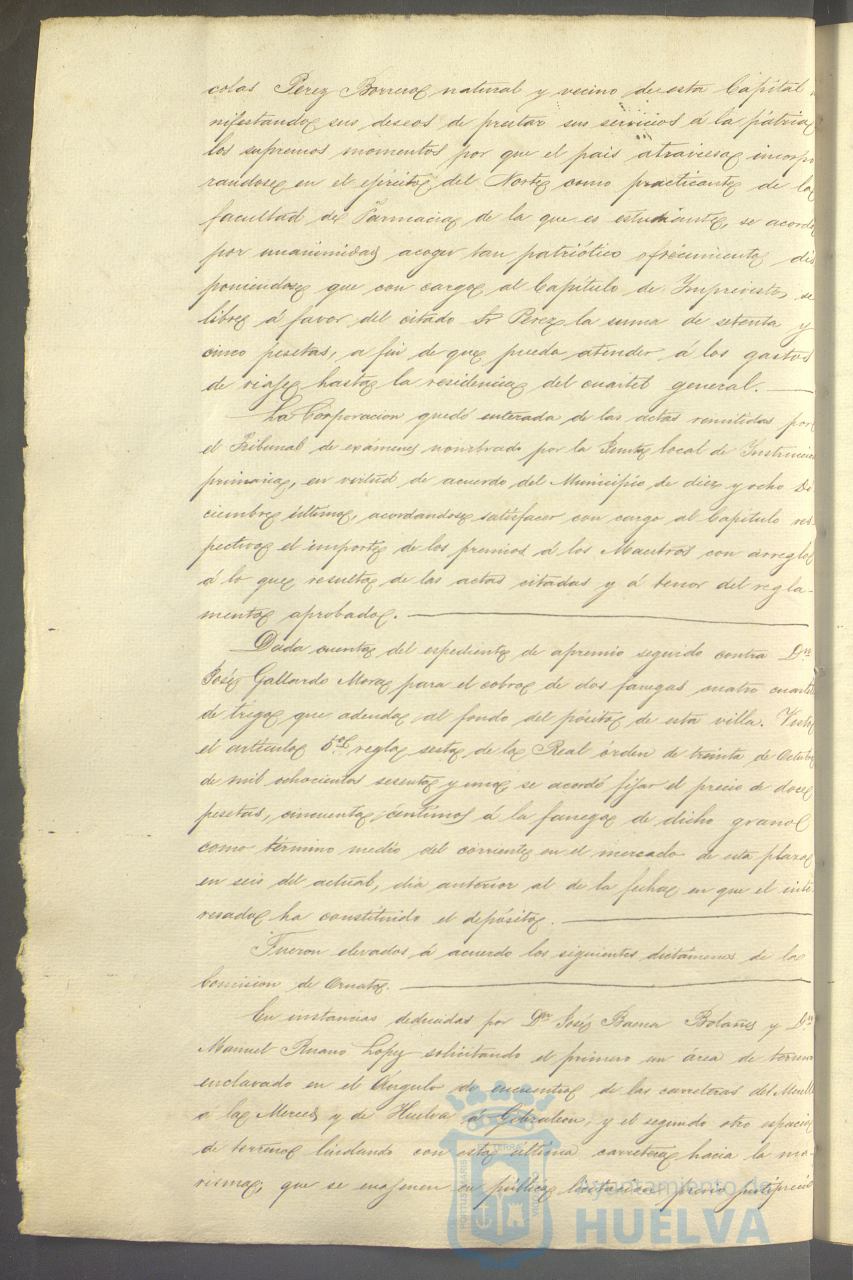 colas Perez Borrero natural y vecino de esta Capital
nifestando sus deseos de prestar sus servicios á la pátria
los supremos momentos por que el pais atraviesa incorpo
randose en el ejército del Norte como practicante de la
facultad de Farmacia de la que es estudiante, se acordó
por unanimidad acoger tan patriótico ofrecimiento dis
poniendose que con cargo al Capítulo de Imprevistos se
libre á favor del citado Sr Perez la suma de setenta y
cinco pesetas, a fin de que pueda atender á los gastos
de viaje hasta la residencia del cuartel general.
La Corporacion quedó enterada de las actas remitidas por
el Tribunal de exámenes nombrado por la Junta local de Instruccion
primaria, en virtud de acuerdo del Municipio de diez y ocho Di
ciembre último, acordandose satisfacer con cargo al Capítulo res
pectivo el importe de los premios á los Maestros con arreglo
á lo que resulta de las actas citadas y á tenor del regla-
mento aprobado.
Dada cuenta del espediente de apremio seguido contra Dn
José Gallardo Mora para el cobro de dos fanegas cuatro cuartill
de trigo que adeuda al fondo del pósito de esta villa. Visto
el artículo 5º regla sesta de la Real órden de treinta de Octubre
de mil ochocientos sesenta y uno se acordó fijar el precio de doce
pesetas, cincuenta céntimos á la fanega de dicho grano
como término medio del corriente en el mercado de esta plaza
en seis del actual, dia anterior al de la fecha en que el inte
resado ha constituido el depósito.
Fueron elevados á acuerdo los siguientes dictámenes de la
Comision de Ornato.
En instancias deducidas por Dn José Baena Bolaños y Dn
Manuel Ruano Lopez solicitando el primero un área de terreno
enclavado en el Ángulo de encuentro de las carreteras del Muelle
a la Merced y de Huelva á Gibraleon, y el segundo otro espacio
de terreno lindando con esta última carretera hacia la ma-
risma, que se enajenen en pública licitacion previo justiprecio
Ayuntamiento de
HUELVA